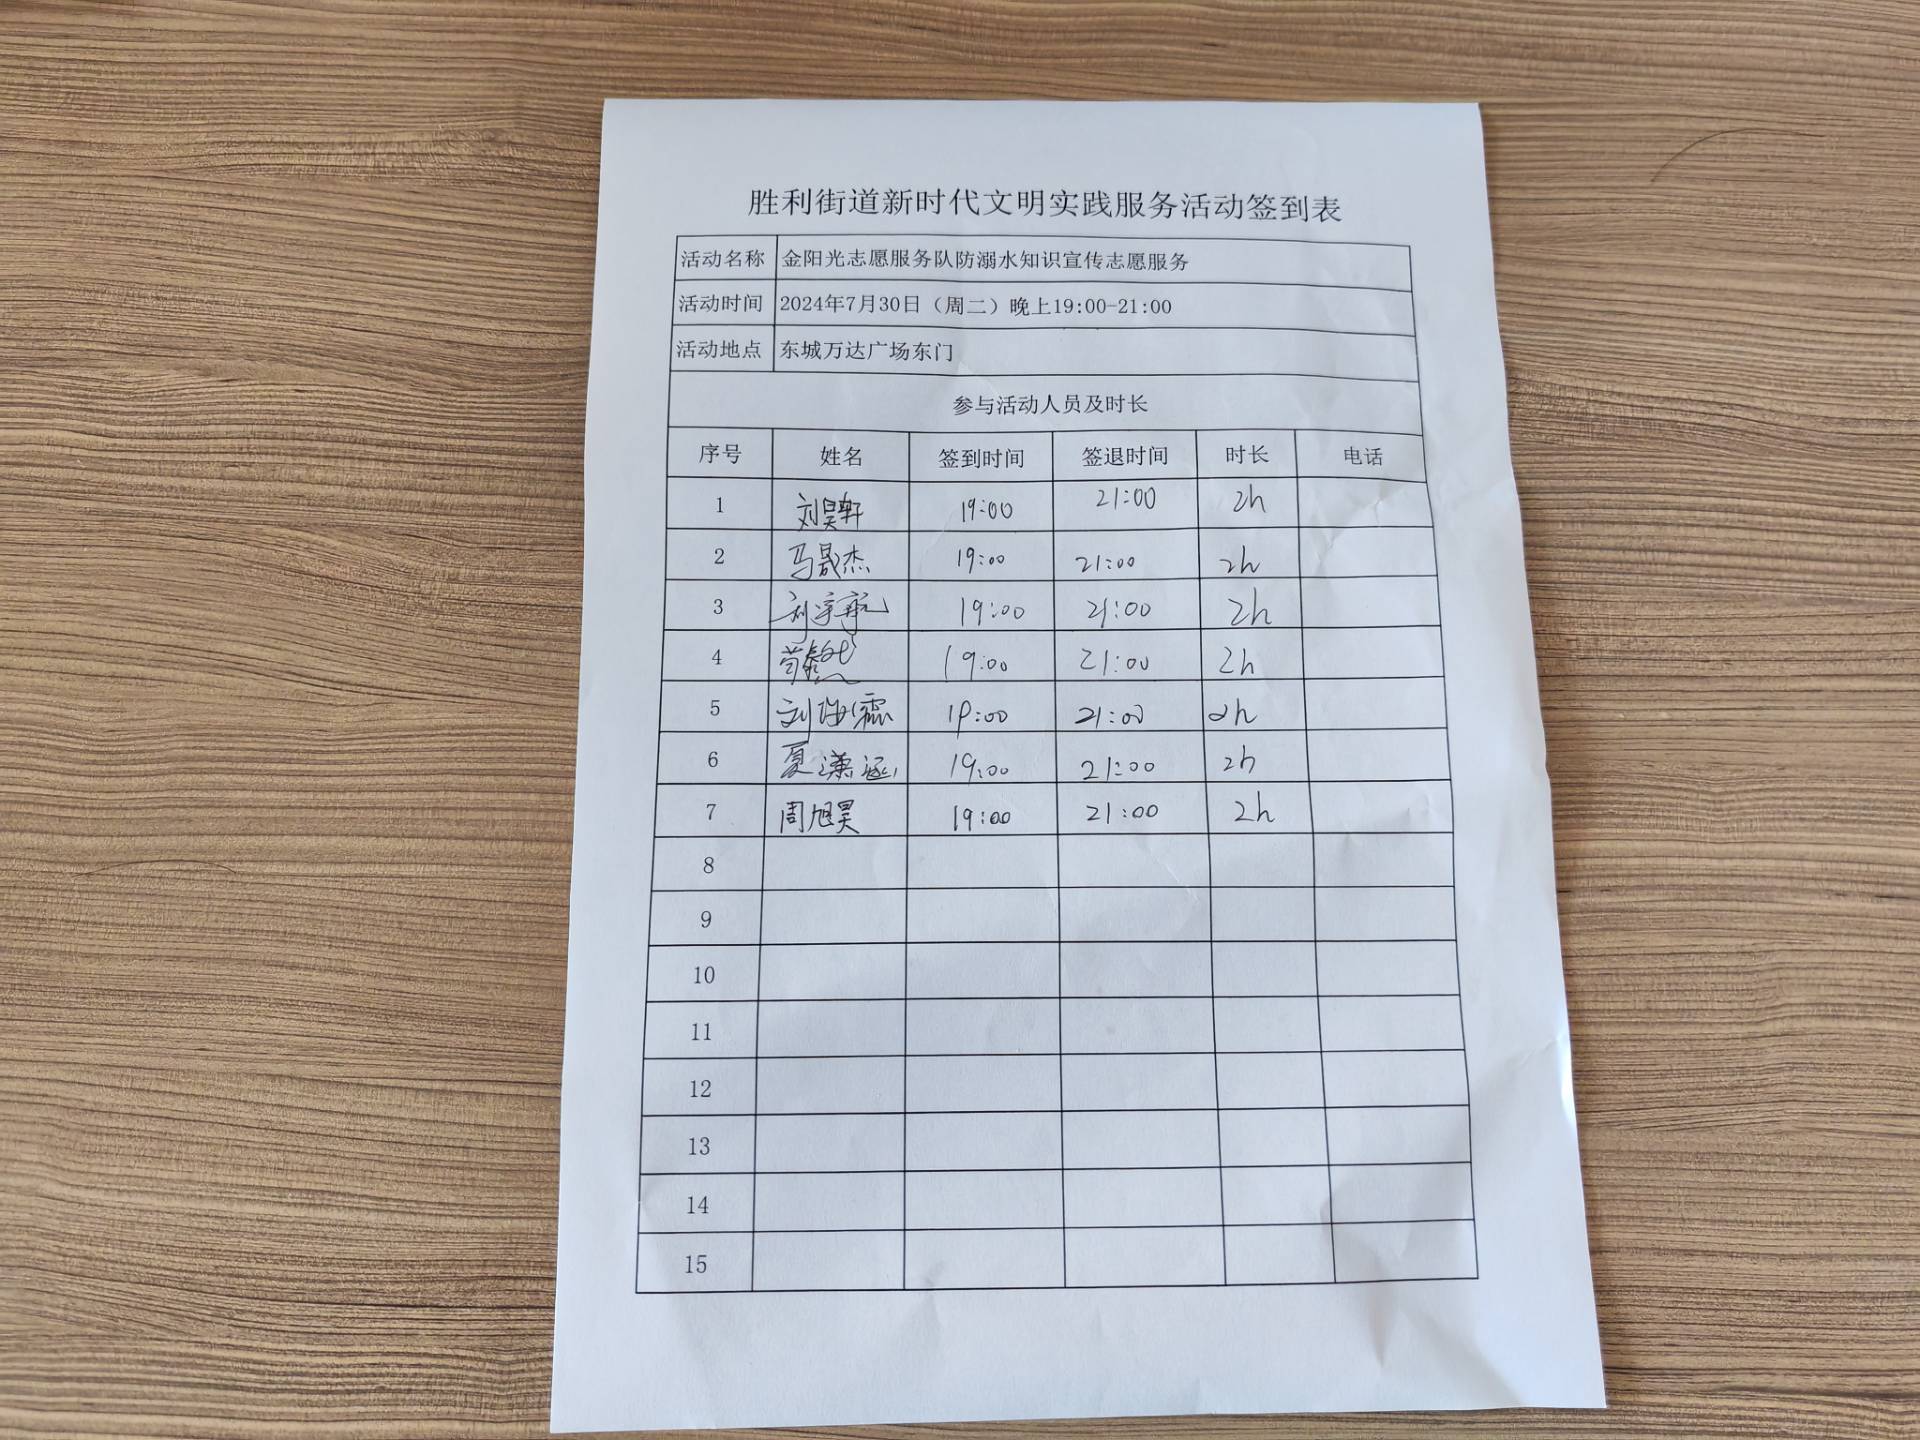 胜利街道新时代文明实践服务活动签到表
活动名称 金阳光志愿服务队防溺水知识宣传志愿服务
活动时间 2024年7月30日（周二）晚上19:00-21:00
活动地点 东城万达广场东门
参与活动人员及时长
序号 姓名 签到时间 签退时间 时长 电话
1 刘昊轩 19:00 21:00 2h
2 马晟杰 19:00 21:00 2h
3 刘宇航 19:00 21:00 2h
4 19:00 21:00 2h
5 刘 霖 19:00 21:00 2h
6 夏潇涵 19:00 21:00 2h
7 周旭昊 19:00 21:00 2h
8
9
10
11
12
13
14
15